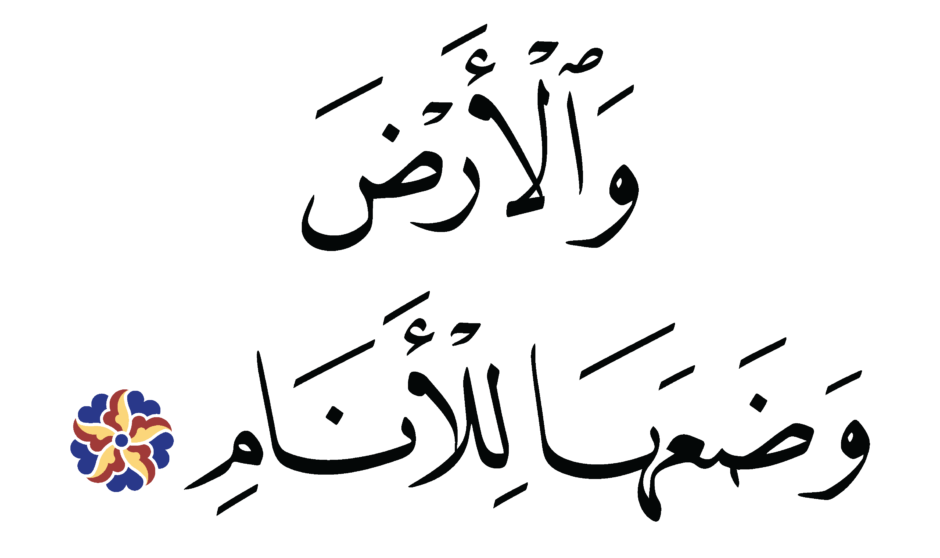 وَٱلْأَرْضَ
وَضَعَهَا لِلْأَنَامِ